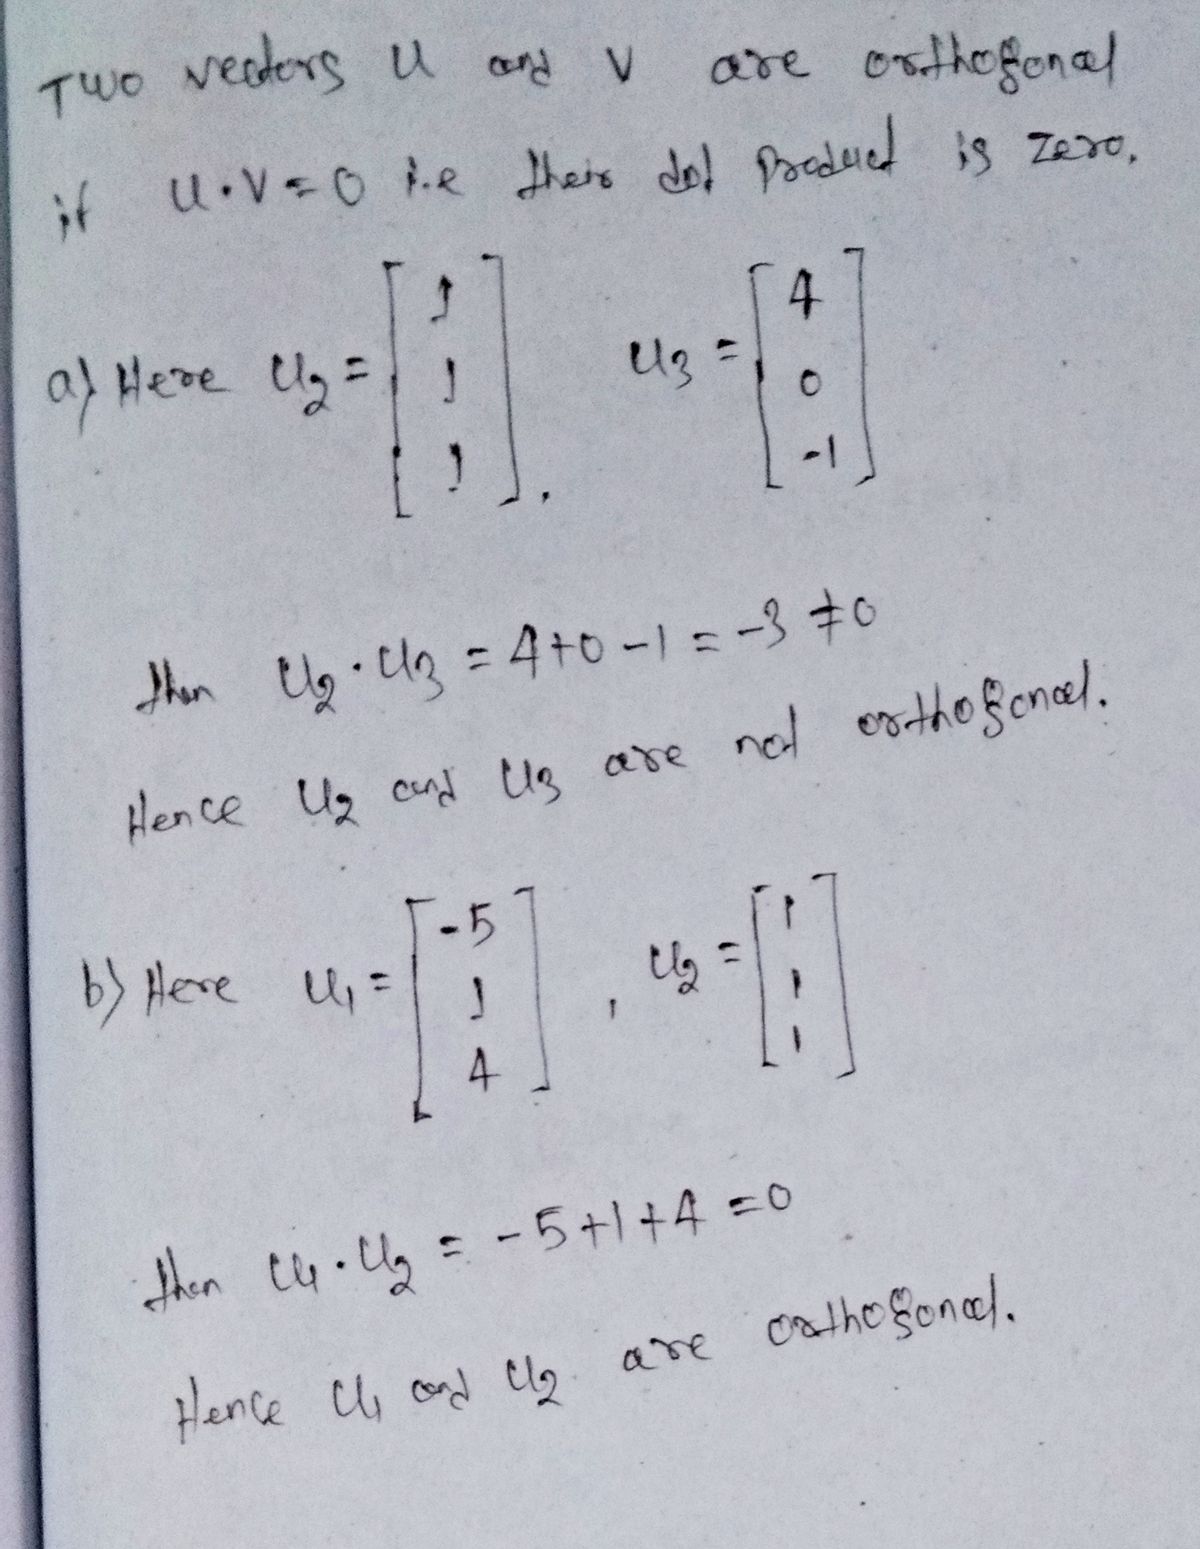 Two vectors u and v are orthogonal
if u·v=0 i.e their dot product is zero.
a) Here u₂ = [1 1 1], u₃ = [4 0 -1]
then u₂·u₃ = 4+0-1 = -3 ≠ 0
Hence u₂ and u₃ are not orthogonal.
b) Here u₁ = [-5 1 4], u₂ = [1 1 1]
then u₁·u₂ = -5+1+4 = 0
Hence u₁ and u₂ are orthogonal.